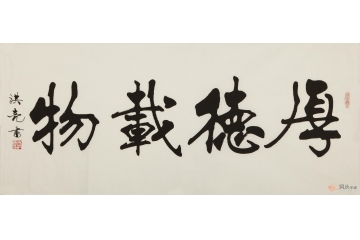 厚德載物
洪亮書